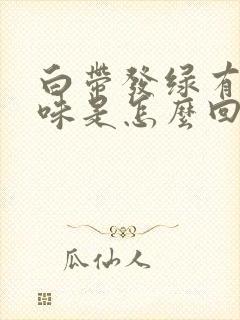 白带發绿有
味是怎麼回
瓜仙人